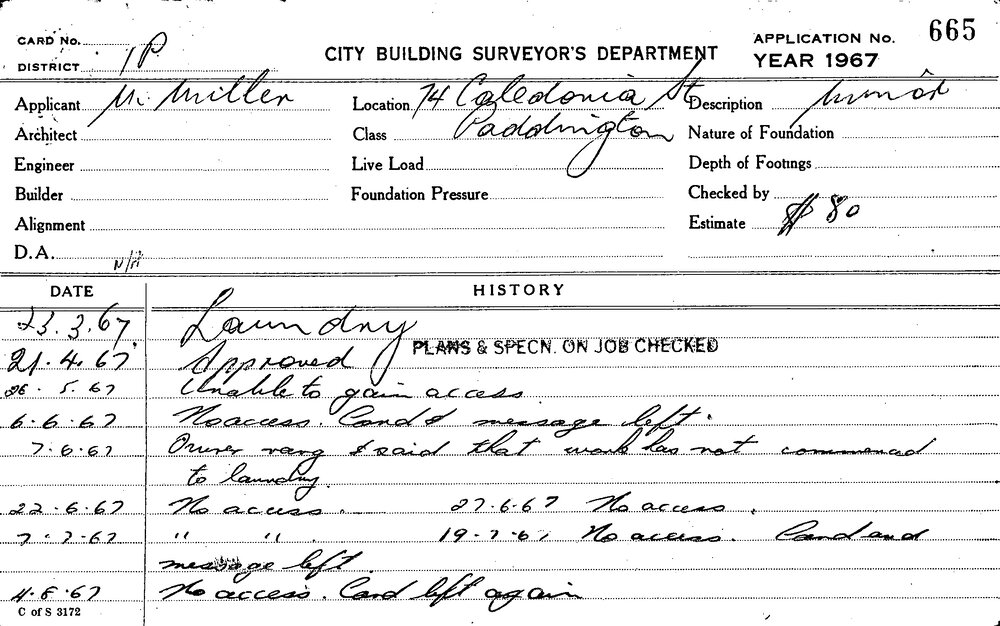 CARD No.
DISTRICT 1P
CITY BUILDING SURVEYOR'S DEPARTMENT
APPLICATION No. 665
YEAR 1967
Applicant M. Miller
Location 74 Caledonia St
Paddington
Description Minor
Architect
Class
Nature of Foundation
Engineer
Live Load
Depth of Footings
Builder
Foundation Pressure
Checked by
Alignment
Estimate $ 80
D.A. N/A
DATE HISTORY
23.3.67. Laundry
21.4.67 Approved PLANS & SPECN. ON JOB CHECKED
26.5.67 Unable to gain access.
6.6.67 No access. Card & message left.
7.6.67 Owner rang & said that work has not commenced
to laundry.
22.6.67 No access. 27.6.67 No access.
7.7.67 " " . 19.7.67 No access. Card and
message left.
4.8.67 No access. Card left again
C of S 3172